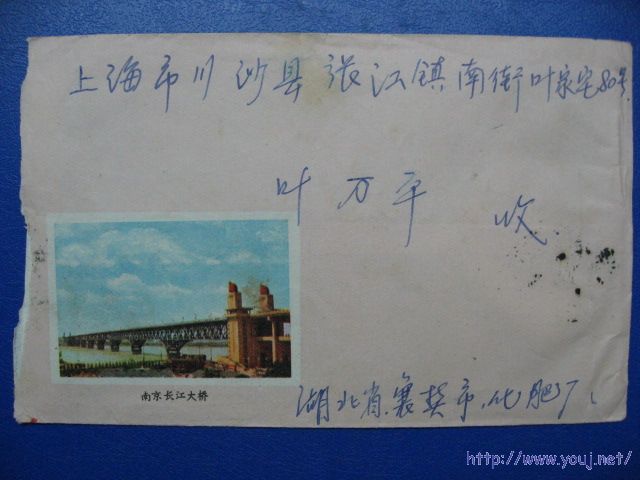 上海市川沙县张江镇南街叶家宅80号
叶万平 收
南京长江大桥
湖北省襄樊市化肥厂
http://www.youj.net/